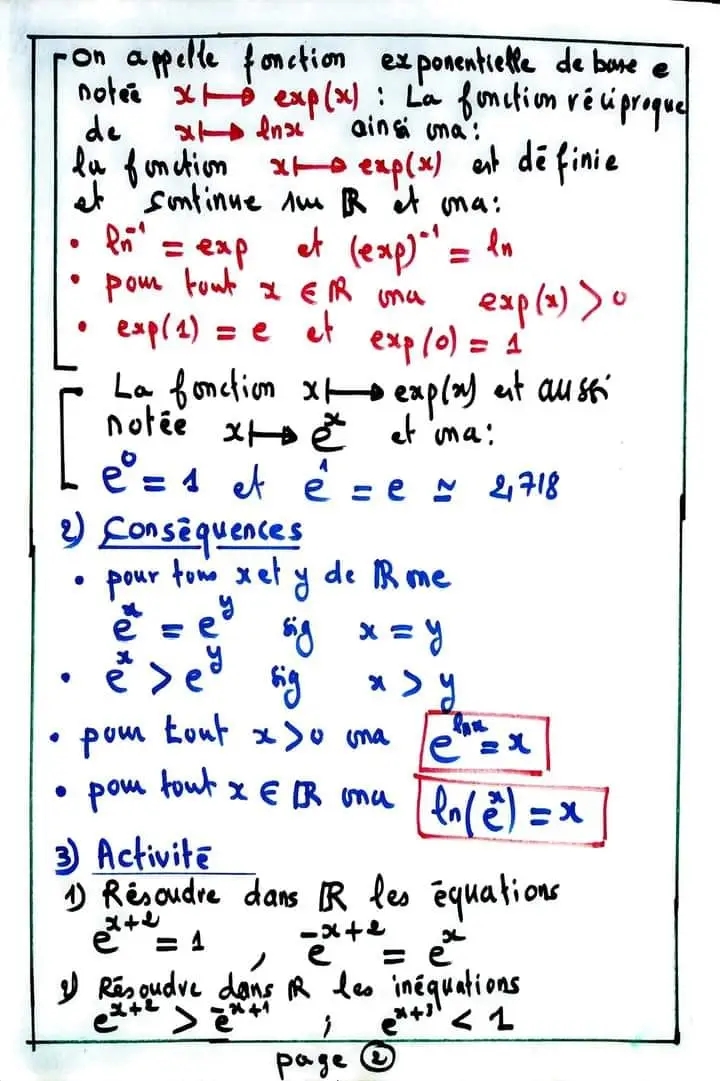 On appelle fonction exponentielle de base e
notée x ↦ exp(x) : La fonction réciproque
de x ↦ lnx ainsi ona :
la fonction x ↦ exp(x) est définie
et continue sur ℝ et ona :
• ln⁻¹ = exp et (exp)⁻¹ = ln
• pour tout x ∈ ℝ ona exp(x) > 0
• exp(1) = e et exp(0) = 1
La fonction x ↦ exp(x) est aussi
notée x ↦ eˣ et ona :
e⁰ = 1 et e¹ = e ≃ 2,718
2) Conséquences
• pour tous x et y de ℝ
eˣ = eʸ sig x = y
• eˣ > eʸ sig x > y
• pour tout x > 0 ona e^(lnx) = x
• pour tout x ∈ ℝ ona ln(eˣ) = x
3) Activité
1) Résoudre dans ℝ les équations
e^(x+2) = 1 , e^(-x+2) = eˣ
2) Résoudre dans ℝ les inéquations
e^(x+2) > e^(-x+1) ; e^(x+3) < 1
page 2